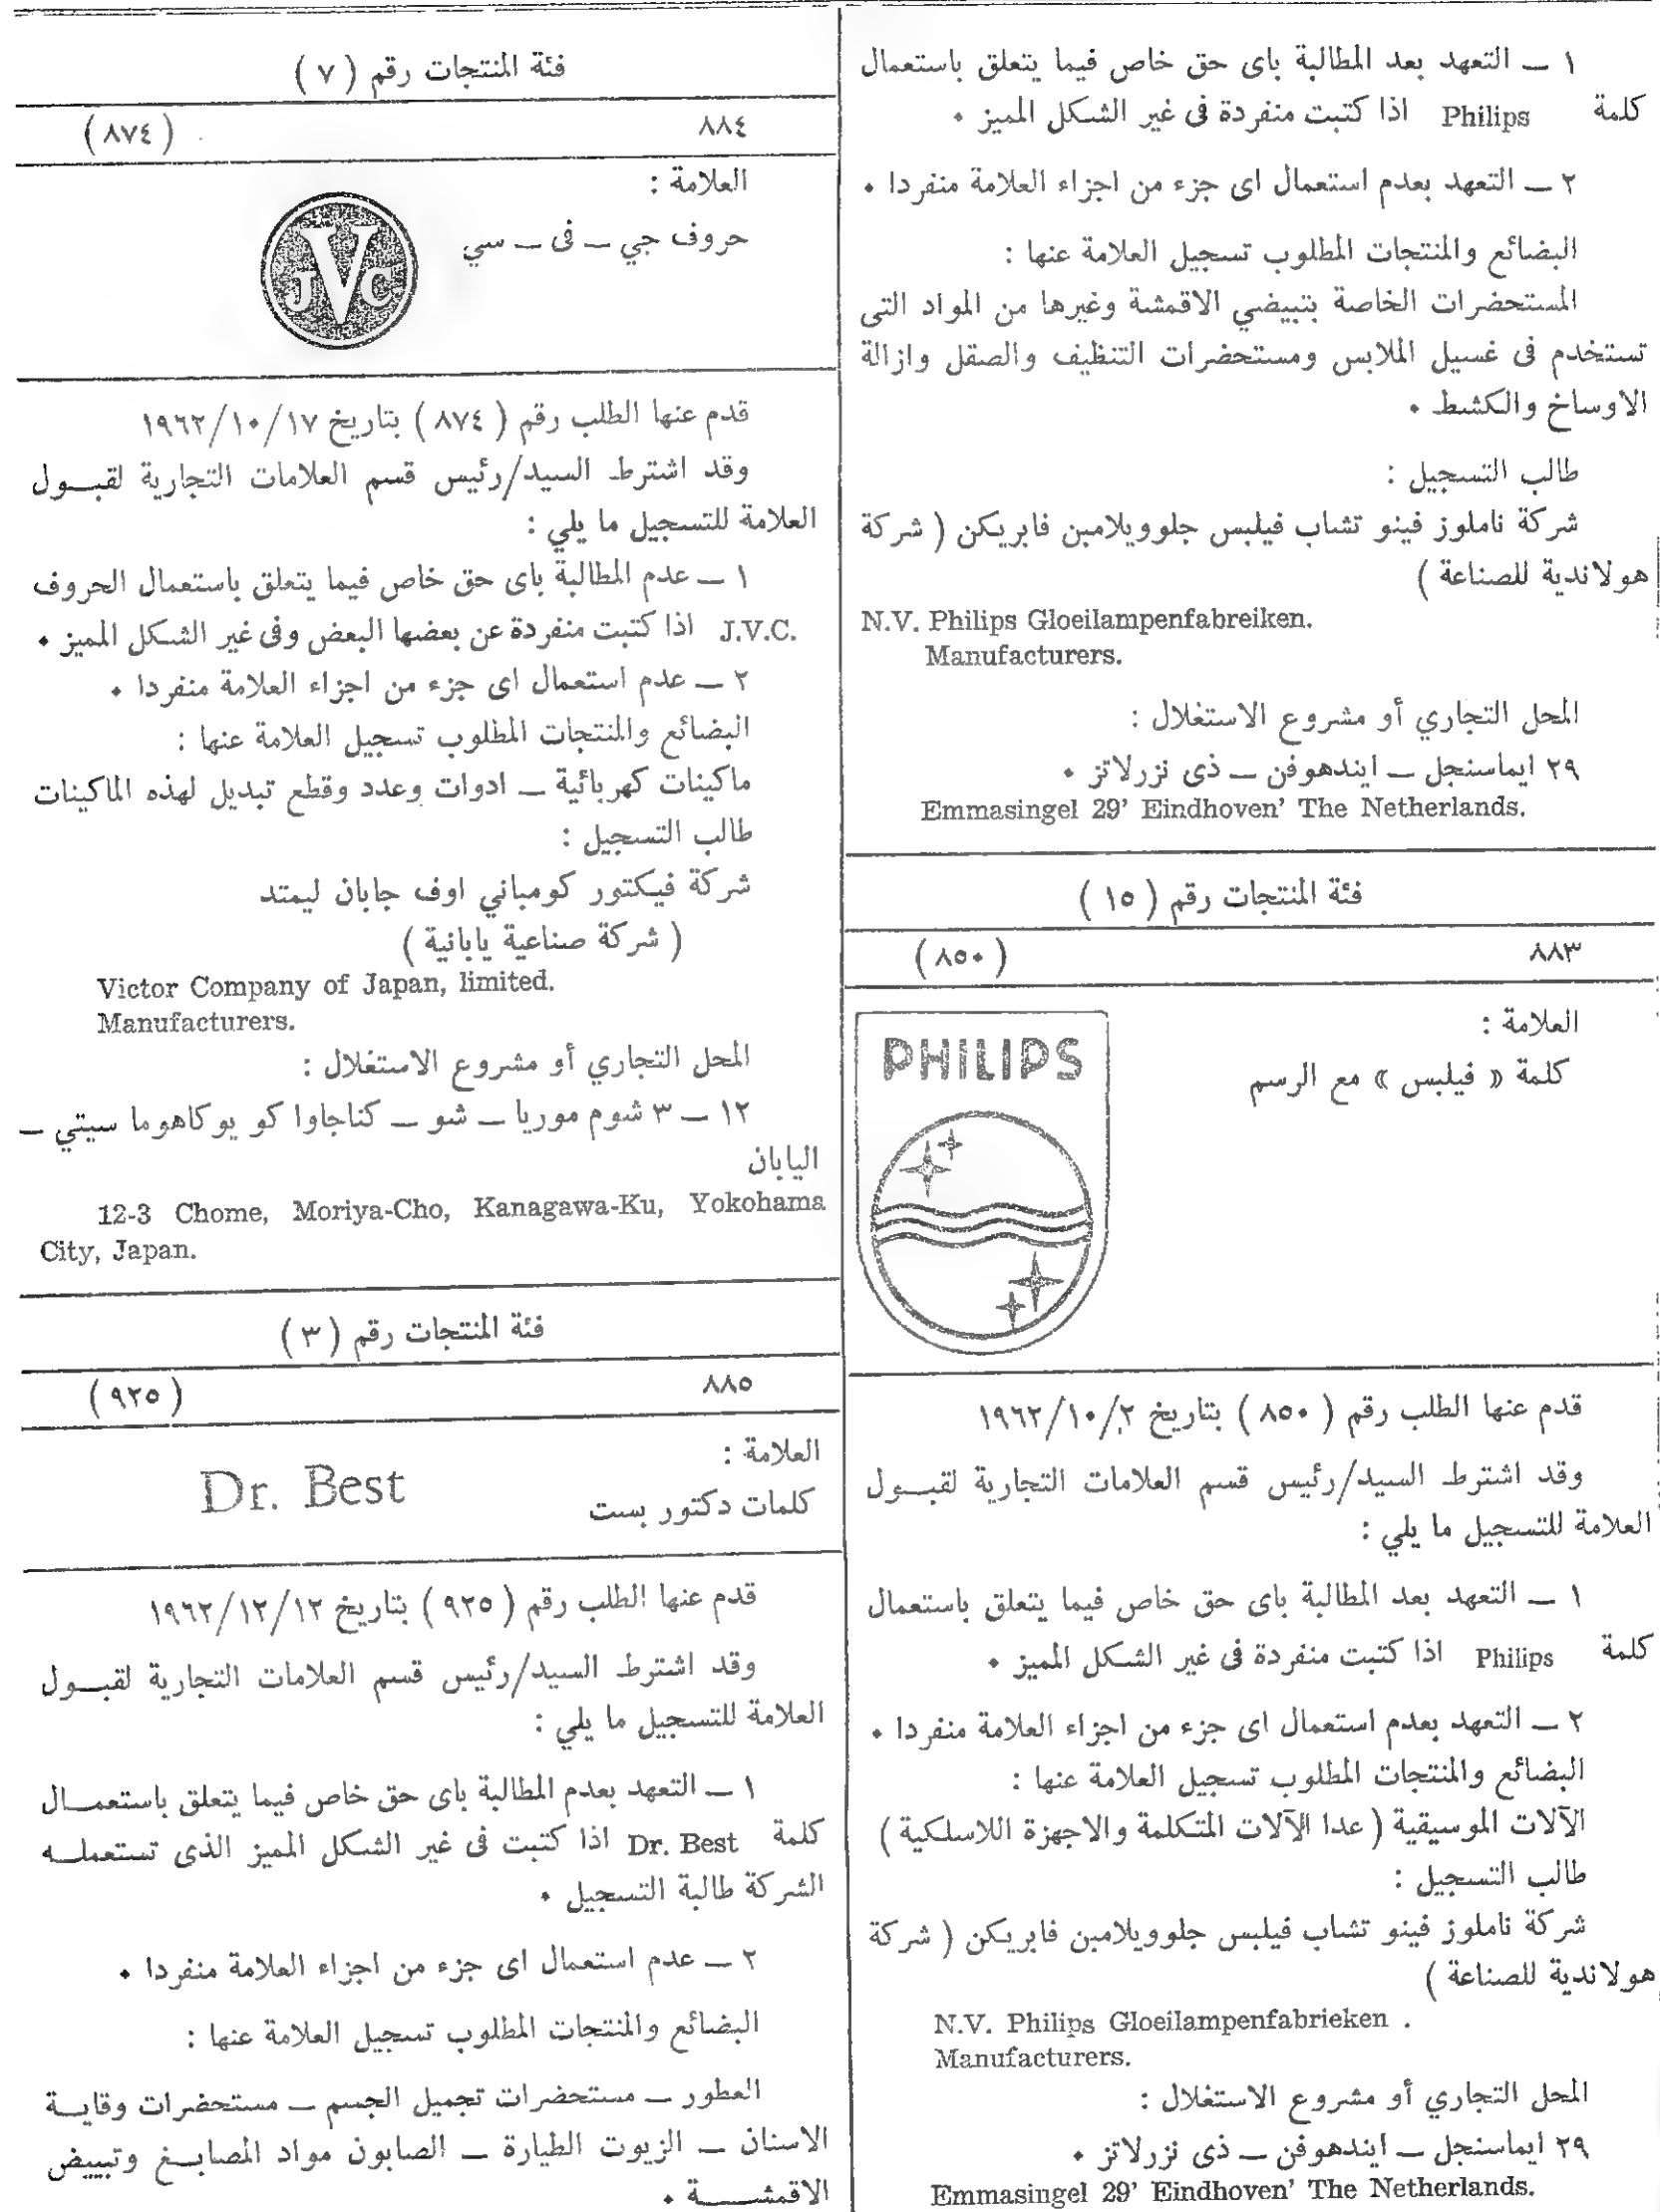 ١ ــ التعهد بعد المطالبة باى حق خاص فيما يتعلق باستعمال
كلمة Philips اذا كتبت منفردة فى غير الشكل المميز ٠
٢ ــ التعهد بعدم استعمال اى جزء من اجزاء العلامة منفردا ٠
البضائع والمنتجات المطلوب تسجيل العلامة عنها :
المستحضرات الخاصة بتبيضي الاقمشة وغيرها من المواد التى
تستخدم فى غسيل الملابس ومستحضرات التنظيف والصقل وازالة
الاوساخ والكشط ٠
طالب التسجيل :
شركة ناملوز فينو تشاب فيلبس جلوويلامبن فابريكن ( شركة
هولاندية للصناعة )
N.V. Philips Gloeilampenfabreiken.
Manufacturers.
المحل التجاري أو مشروع الاستغلال :
٢٩ ايماسنجل ــ ايندهوفن ــ ذى نزرلاتز ٠
Emmasingel 29' Eindhoven' The Netherlands.
فئة المنتجات رقم ( ١٥ )
٨٨٣ ( ٨٥٠ )
العلامة :
كلمة « فيلبس » مع الرسم
PHILIPS
قدم عنها الطلب رقم ( ٨٥٠ ) بتاريخ ١٩٦٢/١٠/٢
وقد اشترط السيد/رئيس قسم العلامات التجارية لقبــول
العلامة للتسجيل ما يلي :
١ ــ التعهد بعد المطالبة باى حق خاص فيما يتعلق باستعمال
كلمة Philips اذا كتبت منفردة فى غير الشكل المميز ٠
٢ ــ التعهد بعدم استعمال اى جزء من اجزاء العلامة منفردا ٠
البضائع والمنتجات المطلوب تسجيل العلامة عنها :
الآلات الموسيقية ( عدا الآلات المتكلمة والاجهزة اللاسلكية )
طالب التسجيل :
شركة ناملوز فينو تشاب فيلبس جلوويلامبن فابريكن ( شركة
هولاندية للصناعة )
N.V. Philips Gloeilampenfabrieken .
Manufacturers.
المحل التجاري أو مشروع الاستغلال :
٢٩ ايماسنجل ــ ايندهوفن ــ ذى نزرلاتز ٠
Emmasingel 29' Eindhoven' The Netherlands.
فئة المنتجات رقم ( ٧ )
٨٨٤ ( ٨٧٤ )
العلامة :
حروف جي ــ فى ــ سي
JVC
قدم عنها الطلب رقم ( ٨٧٤ ) بتاريخ ١٩٦٢/١٠/١٧
وقد اشترط السيد/رئيس قسم العلامات التجارية لقبــول
العلامة للتسجيل ما يلي :
١ ــ عدم المطالبة باى حق خاص فيما يتعلق باستعمال الحروف
J.V.C. اذا كتبت منفردة عن بعضها البعض وفى غير الشكل المميز ٠
٢ ــ عدم استعمال اى جزء من اجزاء العلامة منفردا ٠
البضائع والمنتجات المطلوب تسجيل العلامة عنها :
ماكينات كهربائية ــ ادوات وعدد وقطع تبديل لهذه الماكينات
طالب التسجيل :
شركة فيكتور كومباني اوف جابان ليمتد
( شركة صناعية يابانية )
Victor Company of Japan, limited.
Manufacturers.
المحل التجاري أو مشروع الاستغلال :
١٢ ــ ٣ شوم موريا ــ شو ــ كناجاوا كو يوكاهوما سيتي ــ
اليابان
12-3 Chome, Moriya-Cho, Kanagawa-Ku, Yokohama
City, Japan.
فئة المنتجات رقم ( ٣ )
٨٨٥ ( ٩٢٥ )
العلامة :
كلمات دكتور بست
Dr. Best
قدم عنها الطلب رقم ( ٩٢٥ ) بتاريخ ١٩٦٢/١٢/١٢
وقد اشترط السيد/رئيس قسم العلامات التجارية لقبــول
العلامة للتسجيل ما يلي :
١ ــ التعهد بعدم المطالبة باى حق خاص فيما يتعلق باستعمــال
كلمة Dr. Best اذا كتبت فى غير الشكل المميز الذى تستعملــه
الشركة طالبة التسجيل ٠
٢ ــ عدم استعمال اى جزء من اجزاء العلامة منفردا ٠
البضائع والمنتجات المطلوب تسجيل العلامة عنها :
العطور ــ مستحضرات تجميل الجسم ــ مستحضرات وقايــة
الاسنان ــ الزيوت الطيارة ــ الصابون مواد المصابــغ وتبييض
الاقمشــــة ٠